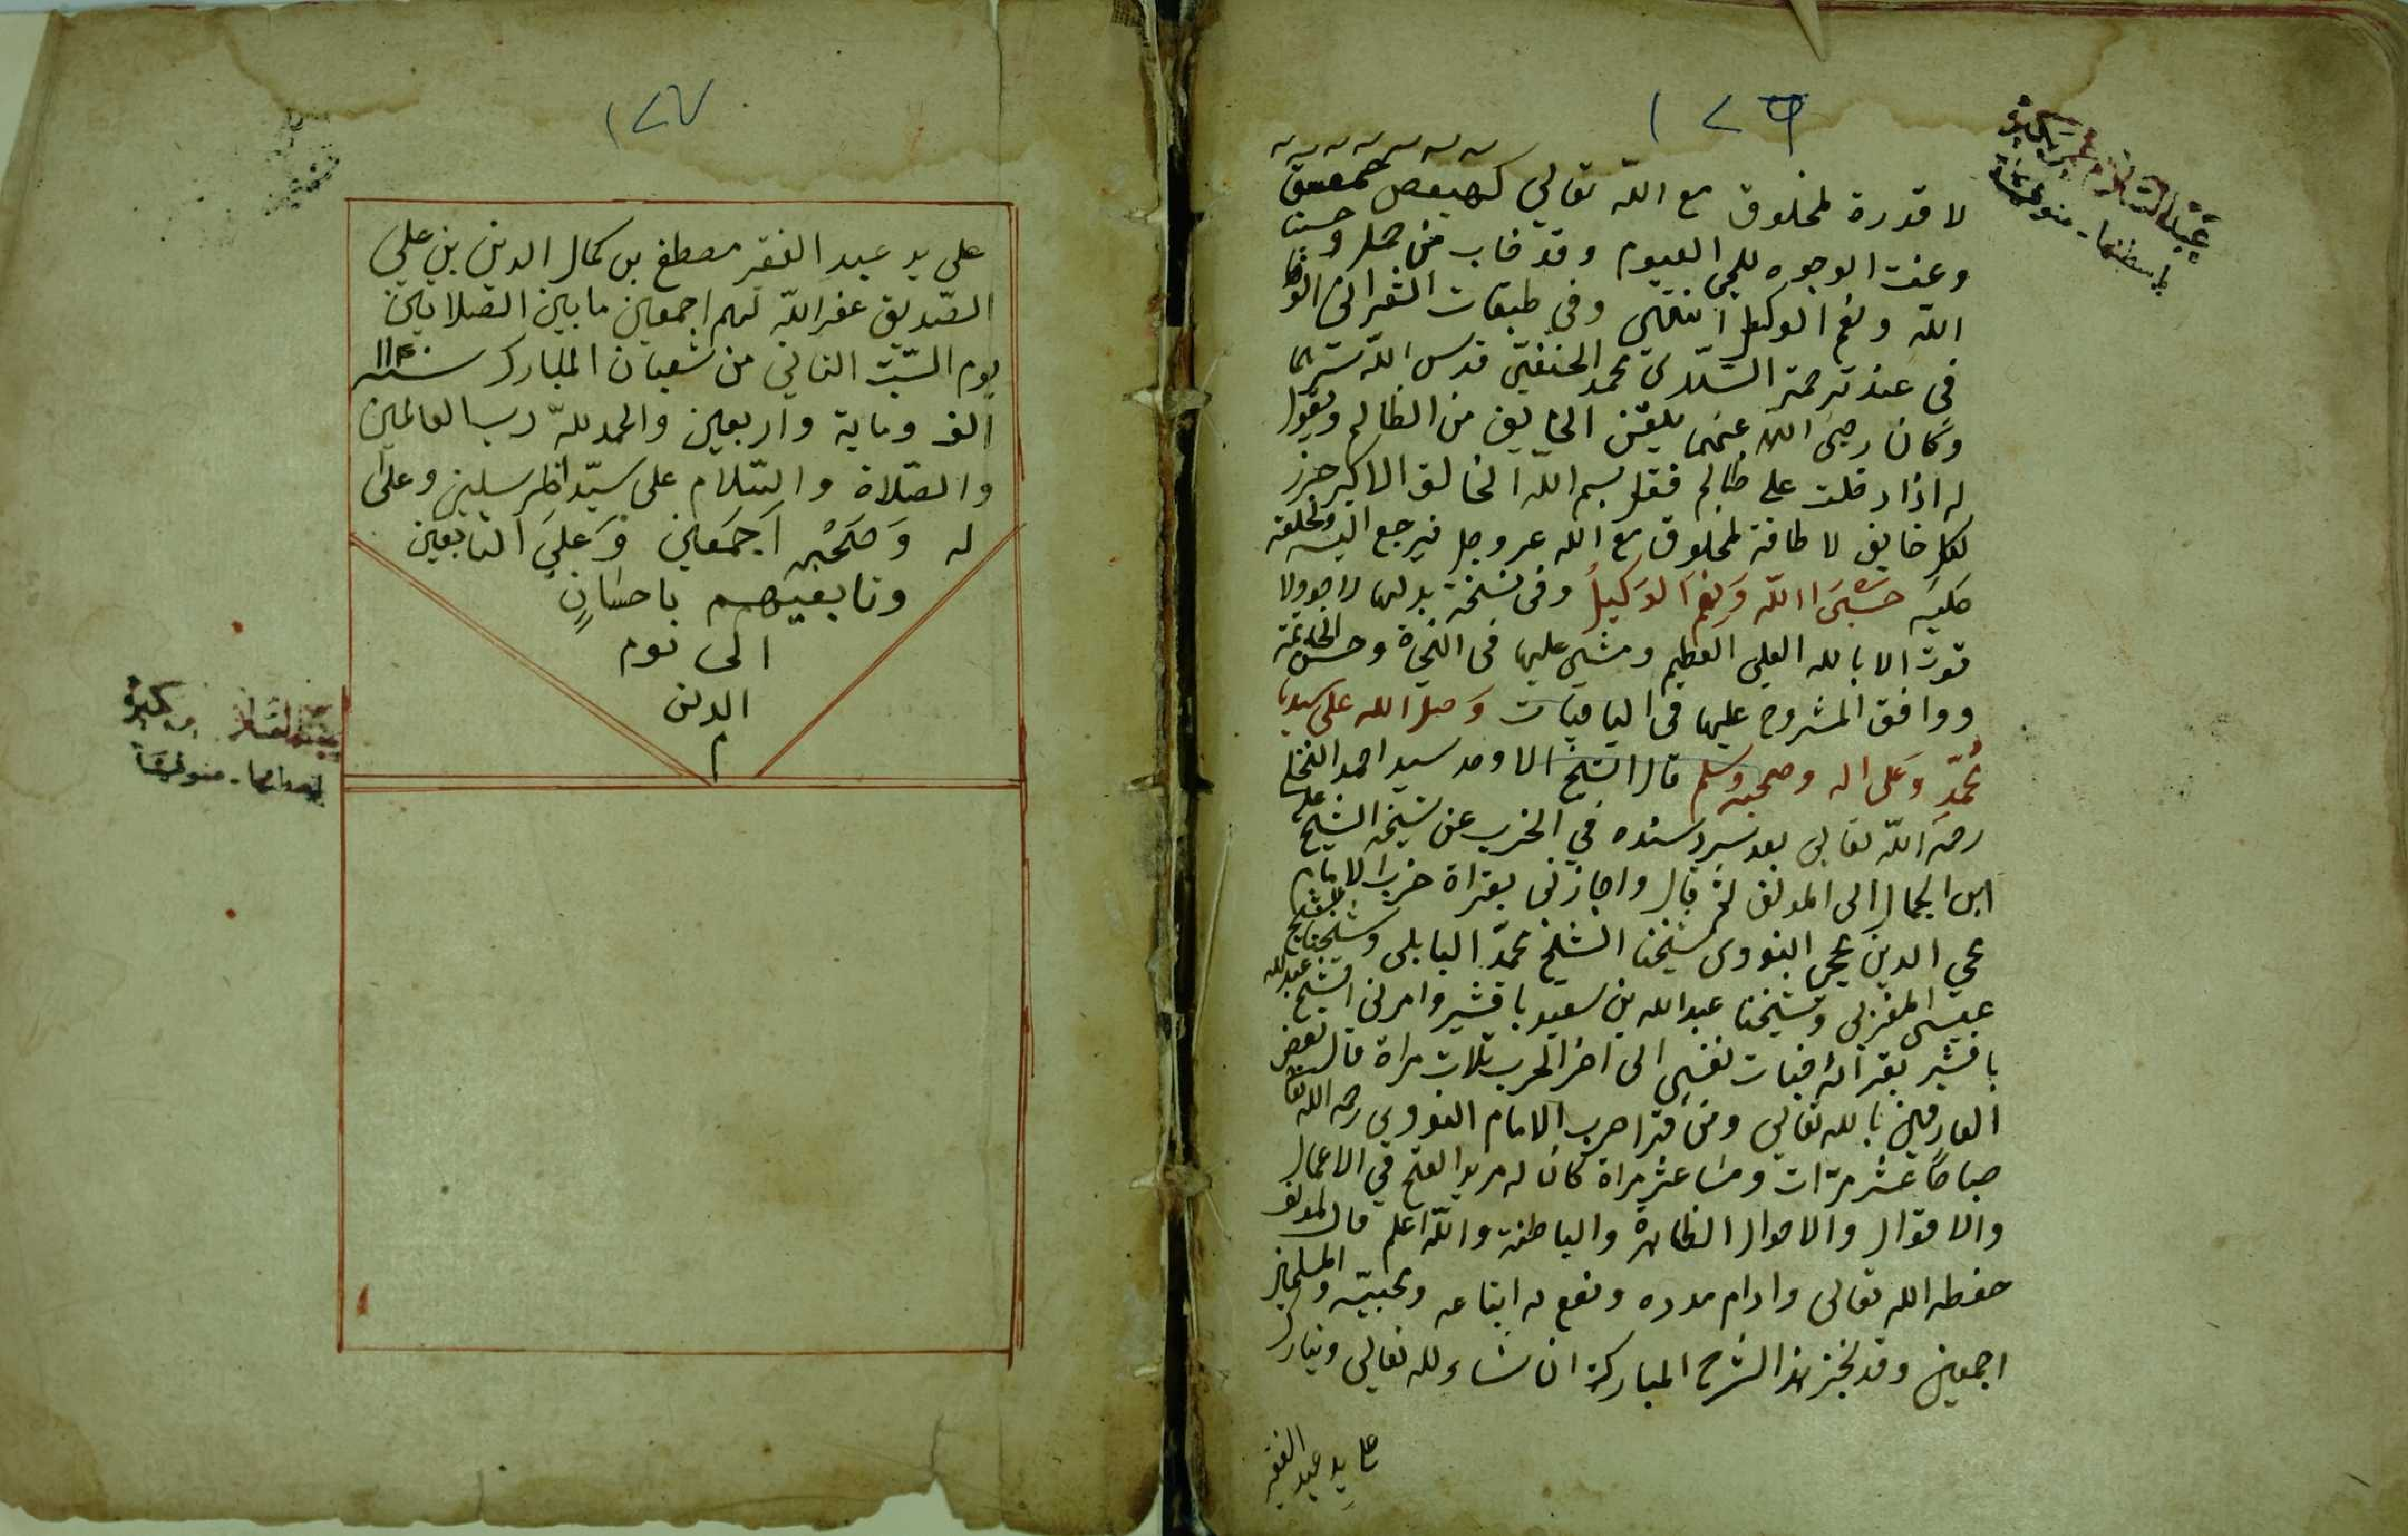 ١٢٦
لا قدرة لمخلوق مع الله تعالى كهيعص حمعسق
وعنت الوجوه للحي القيوم وقد خاب من حمل وحسبنا
الله ونعم الوكيل انتهى وفي طبقات الشعراني
في عند ترجمة السلادى محمد الحنفي قدس الله سرهما
وكان رضى الله عنهما يلقن الخايف من الظالم ويقول
له اذا دخلت على ظالم فقل بسم الله الخالق الاكبر حرز
لكل خايف لا طاقة لمخلوق مع الله عز وجل فيرجع اليه ولخلعه
عليه حسبى الله ونعم الوكيل وفى نسخة بدلها لا حول ولا
قوة الا بالله العلى العظيم ومشى عليها فى وحسن الخاتمة
ووافق المشروح عليها فى الباقيات وصلى الله على سيدنا
محمد وعلى اله وصحبه وسلم قال الشيخ الاوحد سيد احمد النخلى
رحمه الله تعالى بعد سرد سنده في الحزب عن شيخه الشيخ على
ابن الجمال الى المولف ثم قال واجازنى بقراة حزب الامام
محي الدين يحيى النووى شيخنا الشيخ محمد البابلى وشيخنا الشيخ
عيسى المغربى وشيخنا عبدالله بن سعيد باقشير وامرنى الشيخ عبدالله
باقشير بقراته نفسى الى اخر الحزب ثلاث مراة قال بعض
العارفين بالله تعالى ومن قرا حزب الامام النووي رحمه الله تعا
صباحًا عشر مرّات ومسا عشر مراة كان له مريد الفتح في الاعمال
والاقوال والاحوال الظاهرة والباطنة والله اعلم قال المولف
حفظه الله تعالى وادام مدده ونفع به اتباعه ومحبيه والمسلمين
اجمعين وقد نجز هذا الشرح المبارك ان شاء لله تعالى وتبارك
على يد عبد الفقير
١٢٧
على يد عبد الفقير مصطفى بن كمال الدين بن على
الصّديق غفر الله لهم اجمعين ما بين الصلاتين
يوم السّبت الثاني من شعبان المبارك سنة ١١٤٠
الف وماية واربعين والحمد للّه رب العالمين
والصّلاة والسّلام على سيّد المرسلين وعلى ا
له وَصَحْبِهِ اَجمَعين وَعَلىَ التابعين
وتابعيهم باحسَانٍ
الى يوم
الدين
م